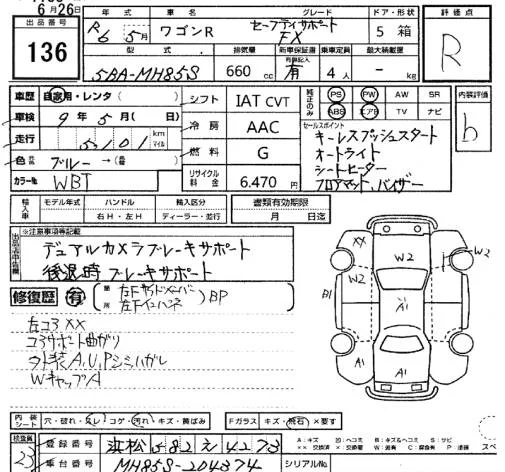 6月26日
出品番号
136
年式 車名 グレード ドア・形状 評価点
R6 5月 ワゴンR セーフティサポート FX 5 箱 R
型式 排気量 新車保証書 乗車定員 最大積載量
5BA-MH85S 660 cc 有 4人 - kg
車歴 自家用・レンタ( )
車検 9年5月( 日)
走行 5,101 km マイル
色 ブルー →( )
カラー№ WBT
シフト IAT CVT
冷房 AAC
燃料 G
リサイクル料金 6.470円
純正のみ PS PW AW SR
ABS エアB TV ナビ
セールスポイント
キーレスプッシュスタート
オートライト
シートヒーター
フロアマット、バイザー
内装評価
b
輸入車 モデル年式 ハンドル 輸入区分 書類有効期限
右H・左H ディーラー・並行 月 日迄
※注意事項等記載
デュアルカメラブレーキサポート
後退時ブレーキサポート
修復歴 有 箇所
左Fサイドメンバー
左Fインパネ
BP
左コアXX
コアサポート曲がり
外装A,U,Pシミハガレ
WキャップA
XX W2 W2 W2 B1 A1 A1
内装シート 穴・破れ・スレ・コゲ・汚れ・キズ・黄ばみ
Fガラス キズ・飛石・×要す
検査員
23
登録番号 浜松 582 え 4273
車台番号 MH85S-204374
シリアル№
A:キズ U:凹 B:キズ&凹 S:サビ
XX:交換済 X:交換要 W:波有 C:腐食有 P:塗装